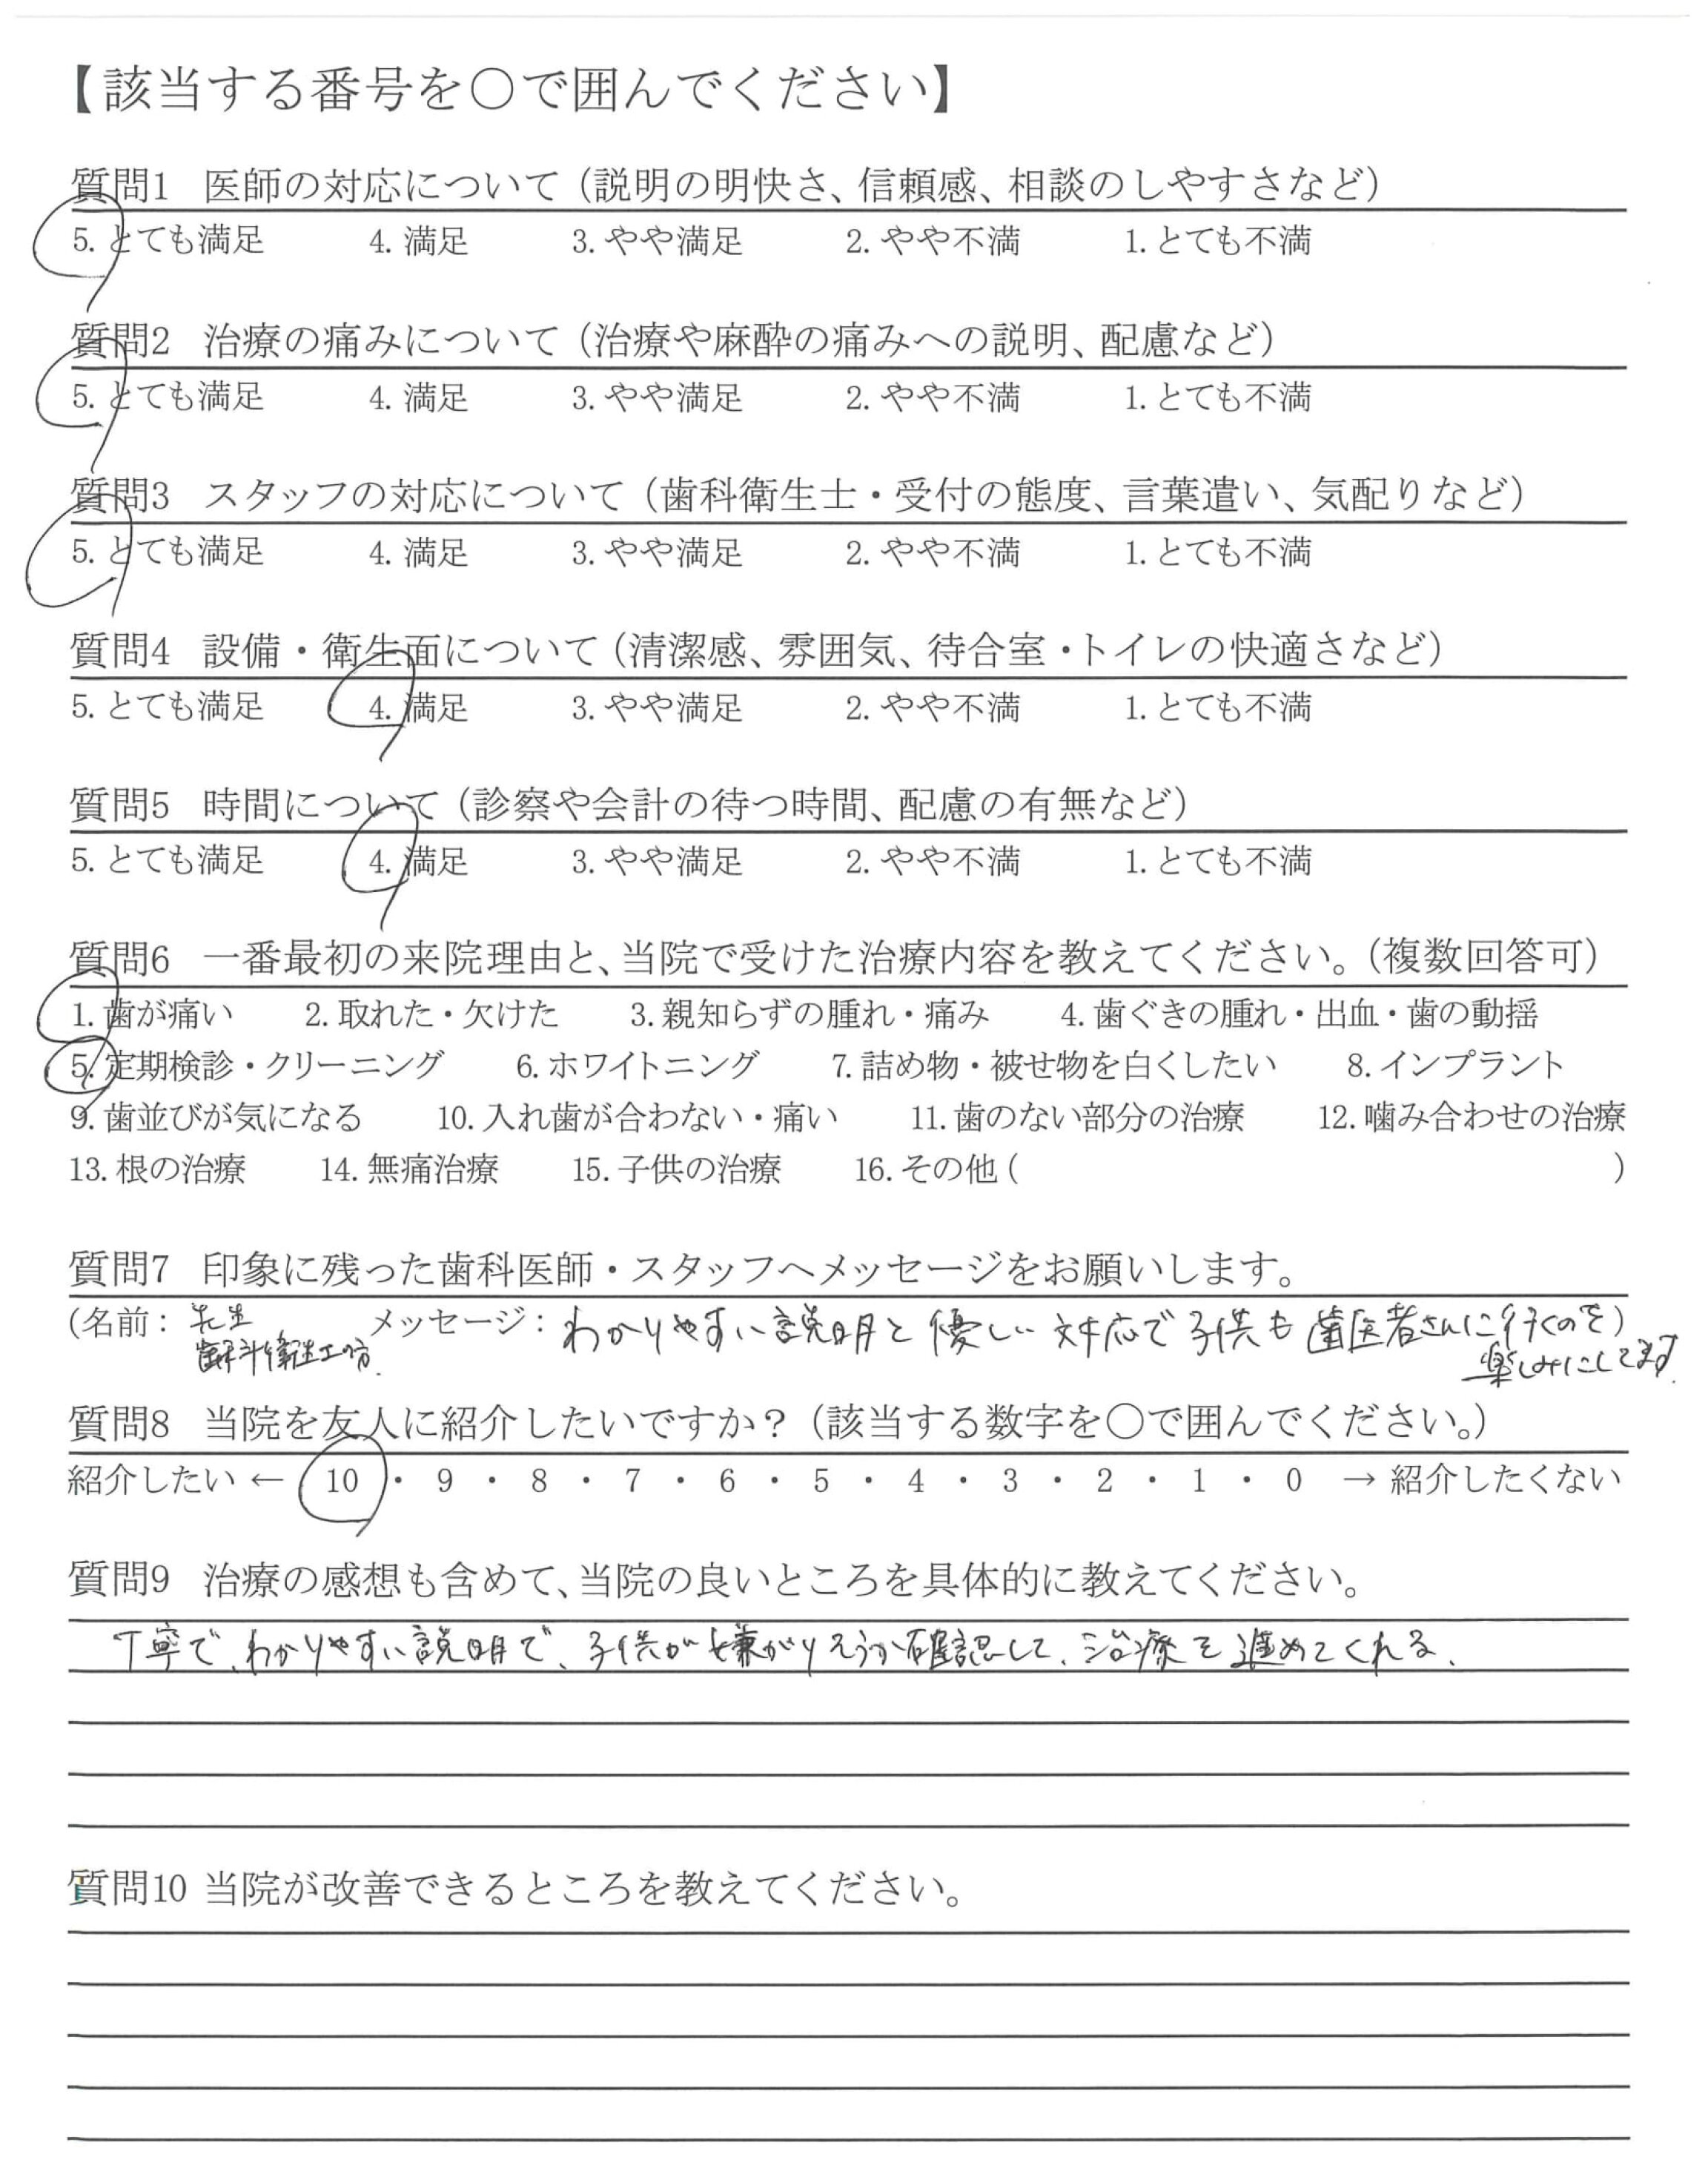 【該当する番号を○で囲んでください】
質問1 医師の対応について（説明の明快さ、信頼感、相談のしやすさなど）
5. とても満足 4. 満足 3. やや満足 2. やや不満 1. とても不満
質問2 治療の痛みについて（治療や麻酔の痛みへの説明、配慮など）
5. とても満足 4. 満足 3. やや満足 2. やや不満 1. とても不満
質問3 スタッフの対応について（歯科衛生士・受付の態度、言葉遣い、気配りなど）
5. とても満足 4. 満足 3. やや満足 2. やや不満 1. とても不満
質問4 設備・衛生面について（清潔感、雰囲気、待合室・トイレの快適さなど）
5. とても満足 4. 満足 3. やや満足 2. やや不満 1. とても不満
質問5 時間について（診察や会計の待つ時間、配慮の有無など）
5. とても満足 4. 満足 3. やや満足 2. やや不満 1. とても不満
質問6 一番最初の来院理由と、当院で受けた治療内容を教えてください。（複数回答可）
1. 歯が痛い 2. 取れた・欠けた 3. 親知らずの腫れ・痛み 4. 歯ぐきの腫れ・出血・歯の動揺
5. 定期検診・クリーニング 6. ホワイトニング 7. 詰め物・被せ物を白くしたい 8. インプラント
9. 歯並びが気になる 10. 入れ歯が合わない・痛い 11. 歯のない部分の治療 12. 噛み合わせの治療
13. 根の治療 14. 無痛治療 15. 子供の治療 16. その他（ ）
質問7 印象に残った歯科医師・スタッフへメッセージをお願いします。
（名前： 先生 メッセージ： わかりやすい説明と優しい対応で子供も歯医者さんに行くのを）
歯科衛生士の方. 楽しみにしてます.
質問8 当院を友人に紹介したいですか？（該当する数字を○で囲んでください。）
紹介したい ← 10 ・ 9 ・ 8 ・ 7 ・ 6 ・ 5 ・ 4 ・ 3 ・ 2 ・ 1 ・ 0 → 紹介したくない
質問9 治療の感想も含めて、当院の良いところを具体的に教えてください。
丁寧で、わかりやすい説明で、子供が嫌がりそうか確認して、治療を進めてくれる.
質問10 当院が改善できるところを教えてください。